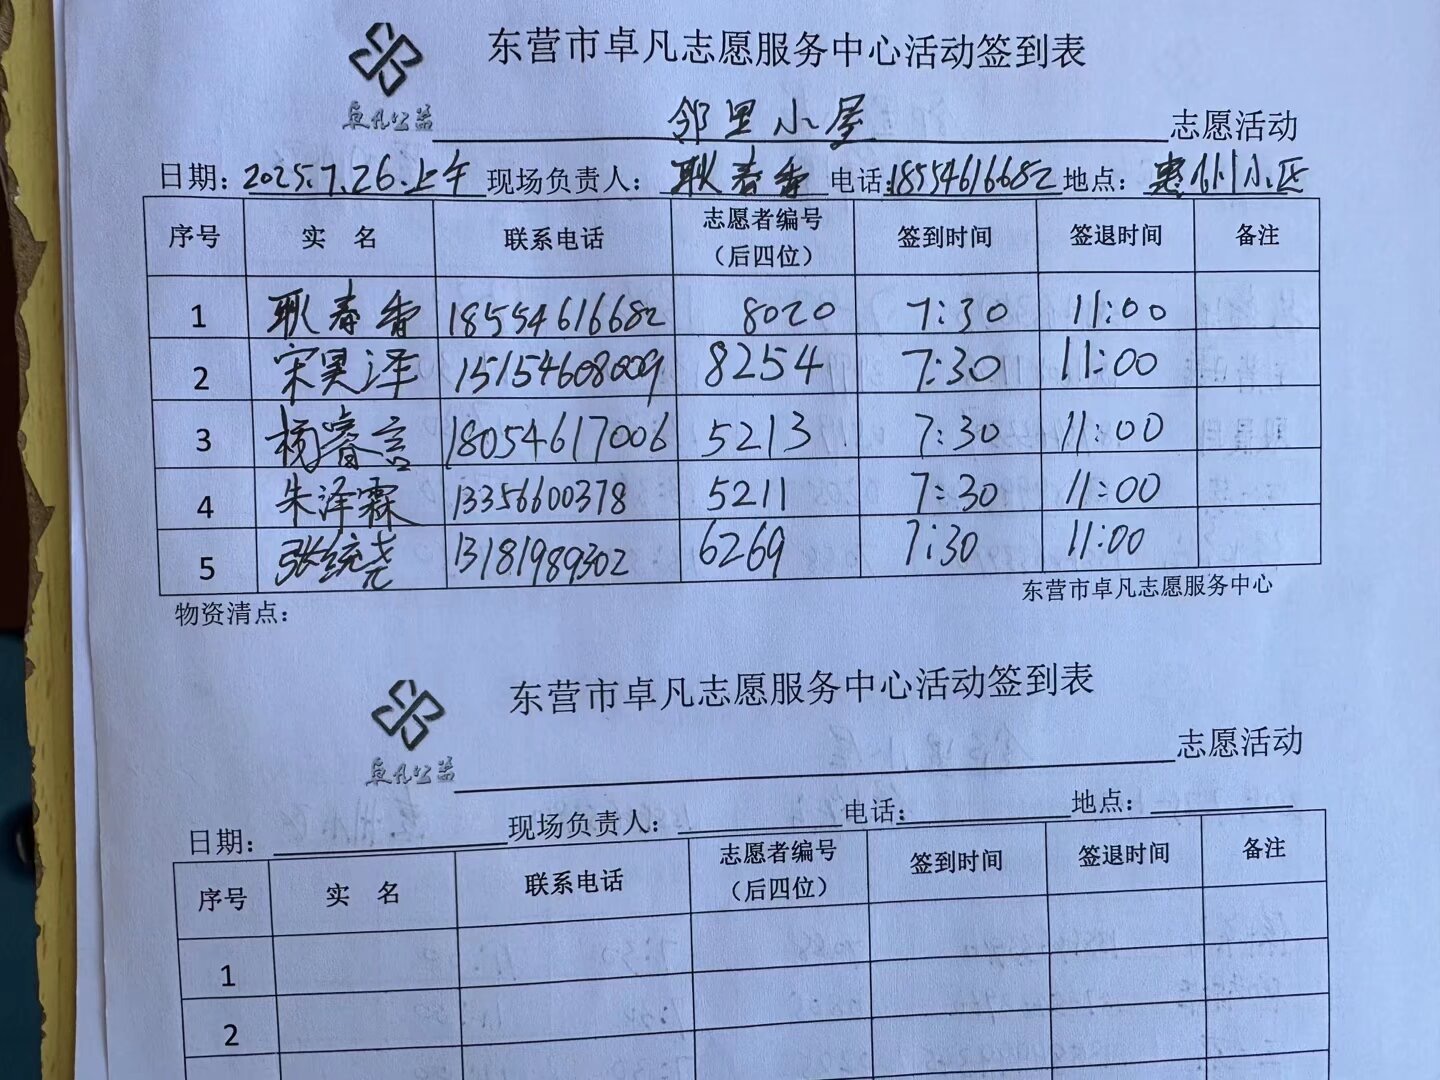 东营市卓凡志愿服务中心活动签到表
卓凡公益 邻里小屋 志愿活动
日期：2025.7.26.上午 现场负责人：耿春香 电话：18554616682 地点：惠州小区
序号 实 名 联系电话 志愿者编号（后四位） 签到时间 签退时间 备注
1 耿春香 18554616682 8020 7:30 11:00
2 宋昊泽 15154608009 8254 7:30 11:00
3 杨睿言 18054617006 5213 7:30 11:00
4 朱泽霖 13356600378 5211 7:30 11:00
5 张统尧 13181989302 6269 7:30 11:00
物资清点： 东营市卓凡志愿服务中心
东营市卓凡志愿服务中心活动签到表
卓凡公益 志愿活动
日期： 现场负责人： 电话： 地点：
序号 实 名 联系电话 志愿者编号（后四位） 签到时间 签退时间 备注
1
2